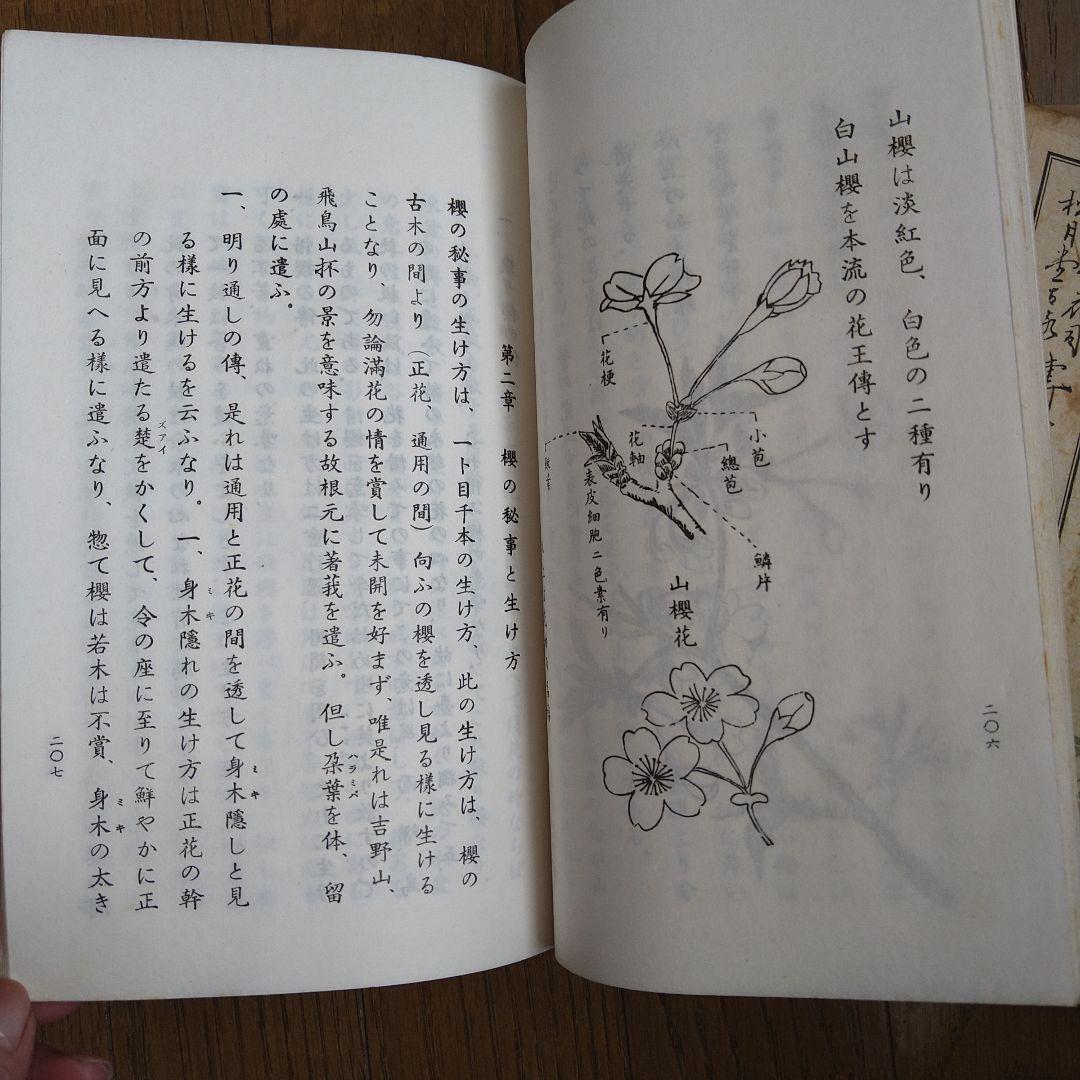 山櫻は淡紅色、白色の二種有り
白山櫻を本流の花王傳とす
花梗
小苞
總苞
花軸
鱗片
表皮細胞ニ色素有リ
山櫻花
二〇六
第二章　櫻の秘事と生け方
櫻の秘事の生け方は、一ト目千本の生け方、此の生け方は、櫻の
古木の間より（正花、通用の間）向ふの櫻を透し見る様に生ける
ことなり、勿論滿花の情を賞して未開を好まず、唯是れは吉野山、
飛鳥山抔の景を意味する故根元に著莪を遣ふ。但し朶葉を体、留
ハラミバ
の處に遣ふ。
一、明り通しの傳、是れは通用と正花の間を透して身木隱しと見
ミキ
る様に生けるを云ふなり。一、身木隱れの生け方は正花の幹
ミキ
の前方より遣たる楚をかくして、令の座に至りて鮮やかに正
ズアイ
面に見へる様に遣ふなり、惣て櫻は若木は不賞、身木の太き
ミキ
二〇七